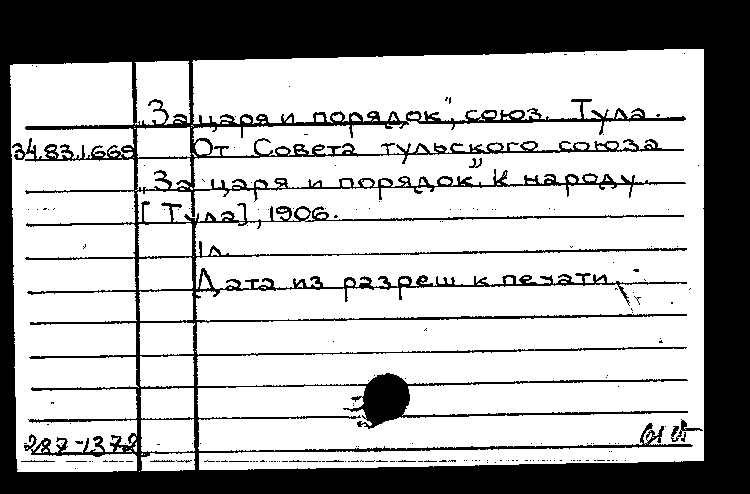 „За царя и порядок", союз. Тула.
34.83.1.669 От Совета тульского союза
„За царя и порядок". К народу.
[Тула], 1906.
1л.
Дата из разреш к печати.
287-1372